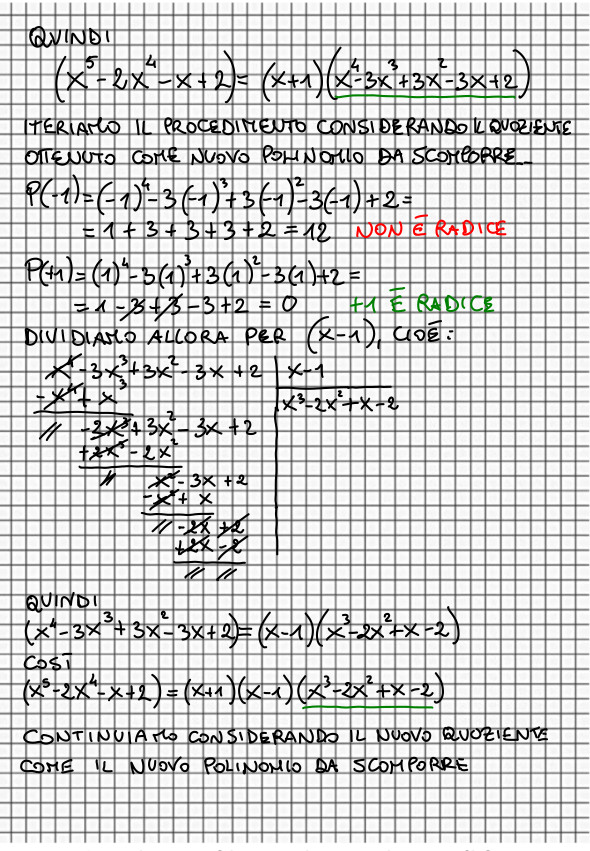 QUINDI
(x⁵-2x⁴-x+2)=(x+1)(x⁴-3x³+3x²-3x+2)
ITERIAMO IL PROCEDIMENTO CONSIDERANDO IL QUOZIENTE
OTTENUTO COME NUOVO POLINOMIO DA SCOMPORRE_
P(-1)=(-1)⁴-3(-1)³+3(-1)²-3(-1)+2=
=1+3+3+3+2=12 NON È RADICE
P(+1)=(1)⁴-3(1)³+3(1)²-3(1)+2=
=1-3+3-3+2=0 +1 È RADICE
DIVIDIAMO ALLORA PER (x-1), CIOÈ:
x⁴-3x³+3x²-3x+2 x-1
-x⁴+x³ x³-2x²+x-2
// -2x³+3x²-3x+2
+2x³-2x²
// x²-3x+2
-x²+x
// -2x+2
+2x-2
// //
QUINDI
(x⁴-3x³+3x²-3x+2)=(x-1)(x³-2x²+x-2)
COSÌ
(x⁵-2x⁴-x+2)=(x+1)(x-1)(x³-2x²+x-2)
CONTINUIAMO CONSIDERANDO IL NUOVO QUOZIENTE
COME IL NUOVO POLINOMIO DA SCOMPORRE